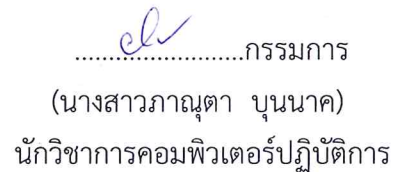 ..........................กรรมการ
(นางสาวภาณุตา บุนนาค)
นักวิชาการคอมพิวเตอร์ปฏิบัติการ